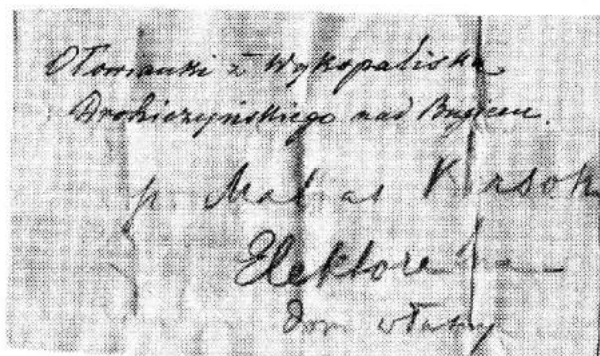 Ołowianki z Wykopaliska
Drohiczyńskiego nad Bugiem.
p. Matias
Elektoralna
dom własny